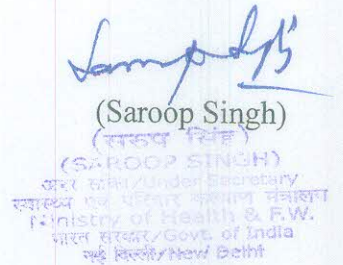 (Saroop Singh)
(सरुप सिंह)
(SAROOP SINGH)
अवर सचिव/Under Secretary
स्वास्थ्य एवं परिवार कल्याण मंत्रालय
Ministry of Health & F.W.
भारत सरकार/Govt. of India
नई दिल्ली/New Delhi